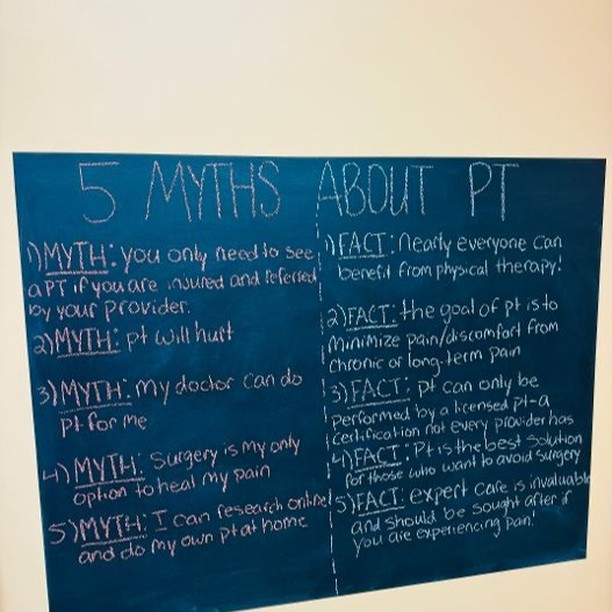 5 MYTHS ABOUT PT
1) MYTH: you only need to see
a PT if you are injured and referred
by your provider.
2) MYTH: pt will hurt
3) MYTH: my doctor can do
pt for me
4) MYTH: Surgery is my only
option to heal my pain
5) MYTH: I can research online
and do my own pt at home
1) FACT: nearly everyone can
benefit from physical therapy!
2) FACT: the goal of pt is to
minimize pain/discomfort from
chronic or long-term pain
3) FACT: pt can only be
performed by a licensed pt-a
certification not every provider has
4) FACT: Pt is the best solution
for those who want to avoid surgery
5) FACT: expert care is invaluable
and should be sought after if
you are experiencing pain!